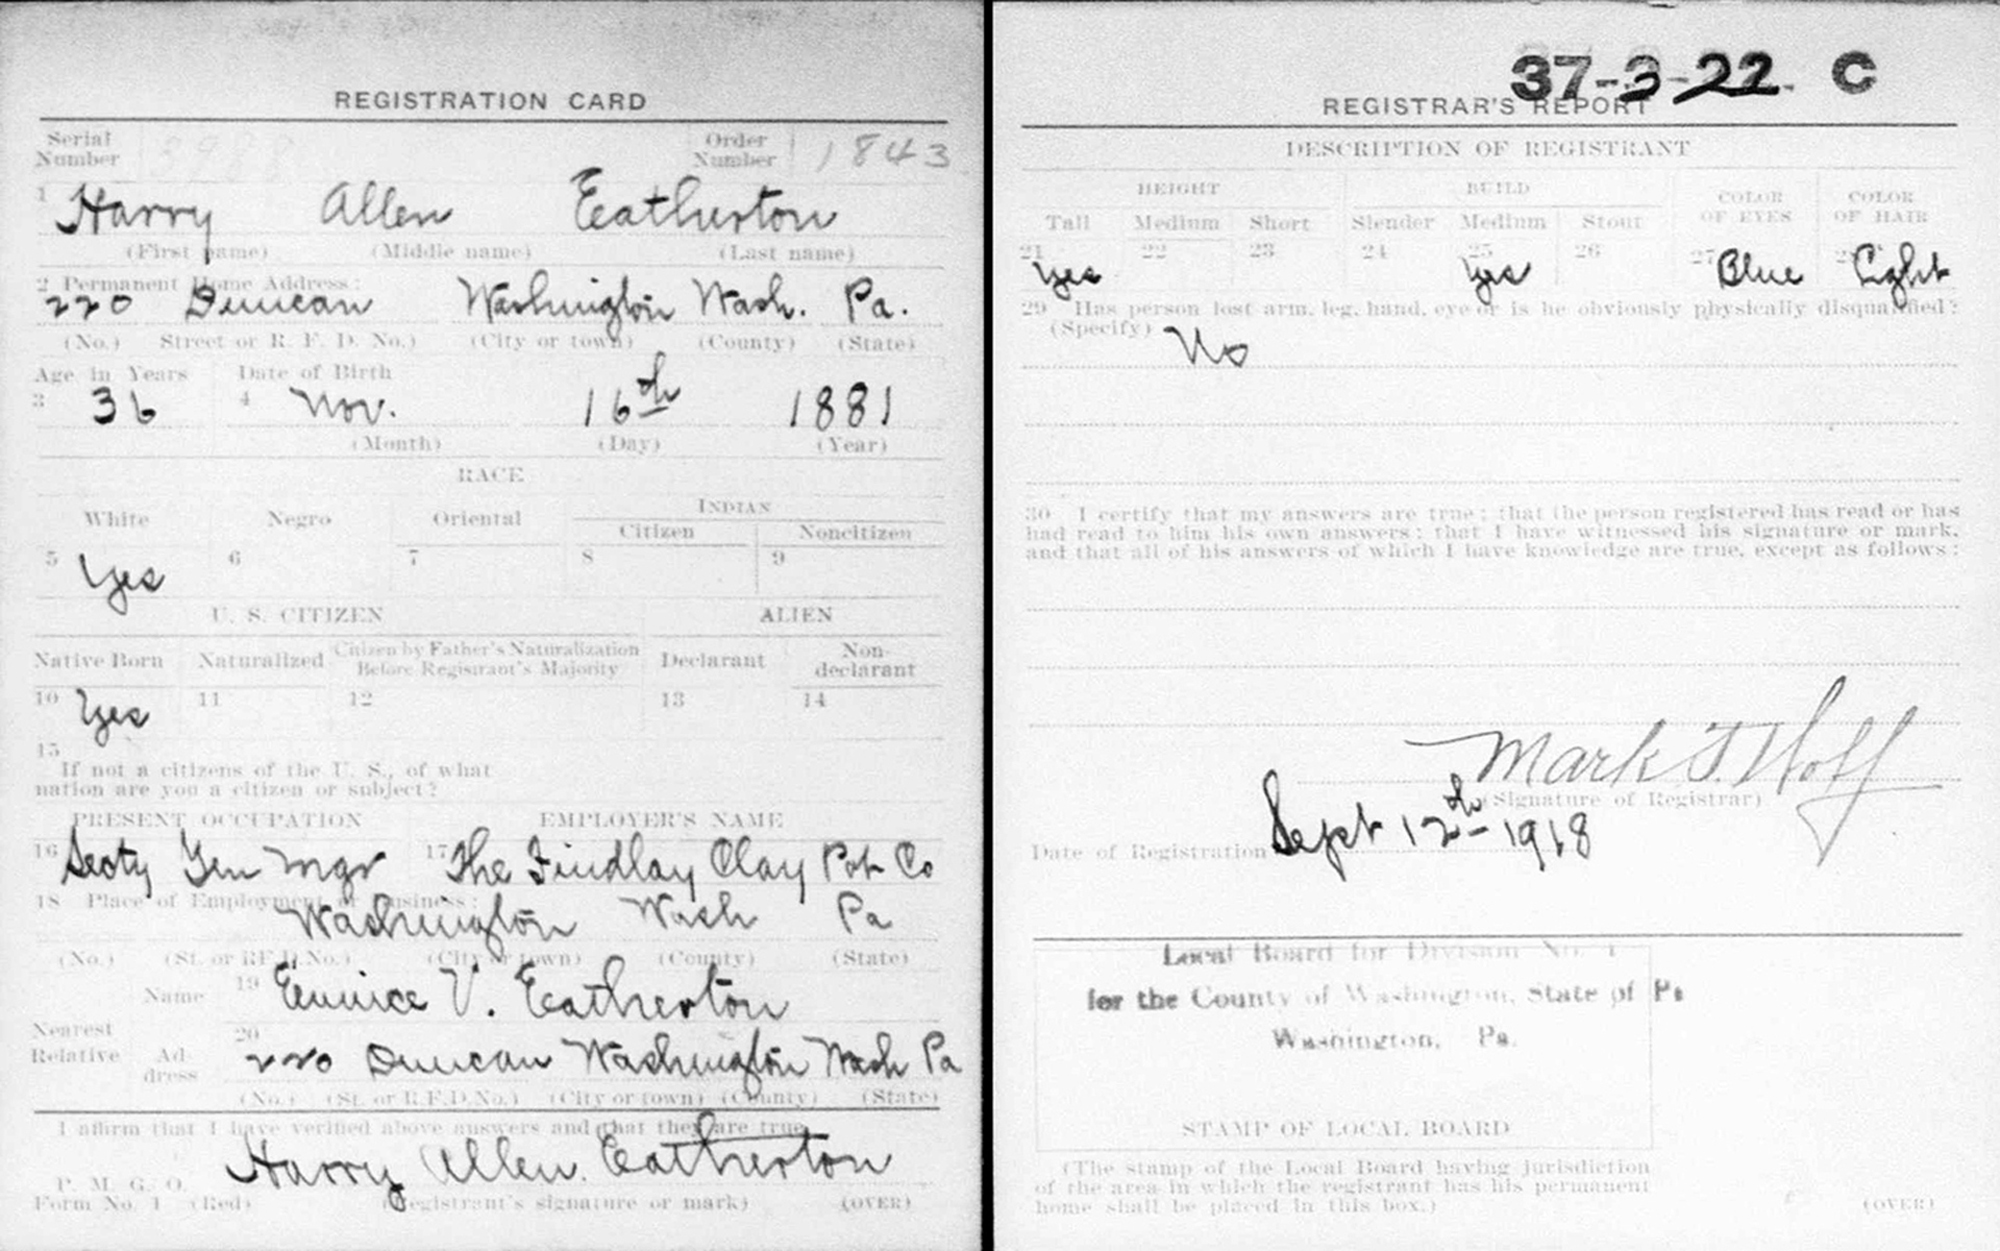 REGISTRATION CARD
Serial Number 3988 Order Number 1843
1 Harry Allen Eatherton
(First name) (Middle name) (Last name)
2 Permanent Home Address:
220 Duncan Washington Wash. Pa.
(No.) Street or R. F. D. No.) (City or town) (County) (State)
Age in Years Date of Birth
3 36 4 Nov. 16th 1881
(Month) (Day) (Year)
RACE
White Negro Oriental INDIAN
Citizen Noncitizen
5 Yes 6 7 8 9
U. S. CITIZEN ALIEN
Native Born Naturalized Citizen by Father's Naturalization Before Registrant's Majority Declarant Non-declarant
10 Yes 11 12 13 14
15
If not a citizens of the U. S., of what
nation are you a citizen or subject?
PRESENT OCCUPATION EMPLOYER'S NAME
16 Secty Gen Mgr 17 The Findlay Clay Pot Co
18 Place of Employment or Business:
Washington Wash Pa
(No.) (St. or RF.D.No.) (City or town) (County) (State)
Nearest Relative
Name 19 Eunice V. Eatherton
Address 20 220 Duncan Washington Wash Pa
(No.) (St. or R.F.D.No.) (City or town) (County) (State)
I affirm that I have verified above answers and that they are true
Harry Allen. Eatherton
P. M. G. O.
Form No. 1 (Red) (Registrant's signature or mark) (OVER)
37-3-22. C
REGISTRAR'S REPORT
DESCRIPTION OF REGISTRANT
HEIGHT BUILD COLOR OF EYES COLOR OF HAIR
Tall Medium Short Slender Medium Stout
21 Yes 22 23 24 25 Yes 26 27 Blue 28 Light
29 Has person lost arm, leg, hand, eye or is he obviously physically disqualified?
(Specify) No
30 I certify that my answers are true; that the person registered has read or has
had read to him his own answers; that I have witnessed his signature or mark,
and that all of his answers of which I have knowledge are true, except as follows:
Mark T.
(Signature of Registrar)
Date of Registration Sept 12th-1918
Local Board for Division No. 1
for the County of Washington, State of Pa
Washington, Pa.
STAMP OF LOCAL BOARD
(The stamp of the Local Board having jurisdiction
of the area in which the registrant has his permanent
home shall be placed in this box.)
(OVER)